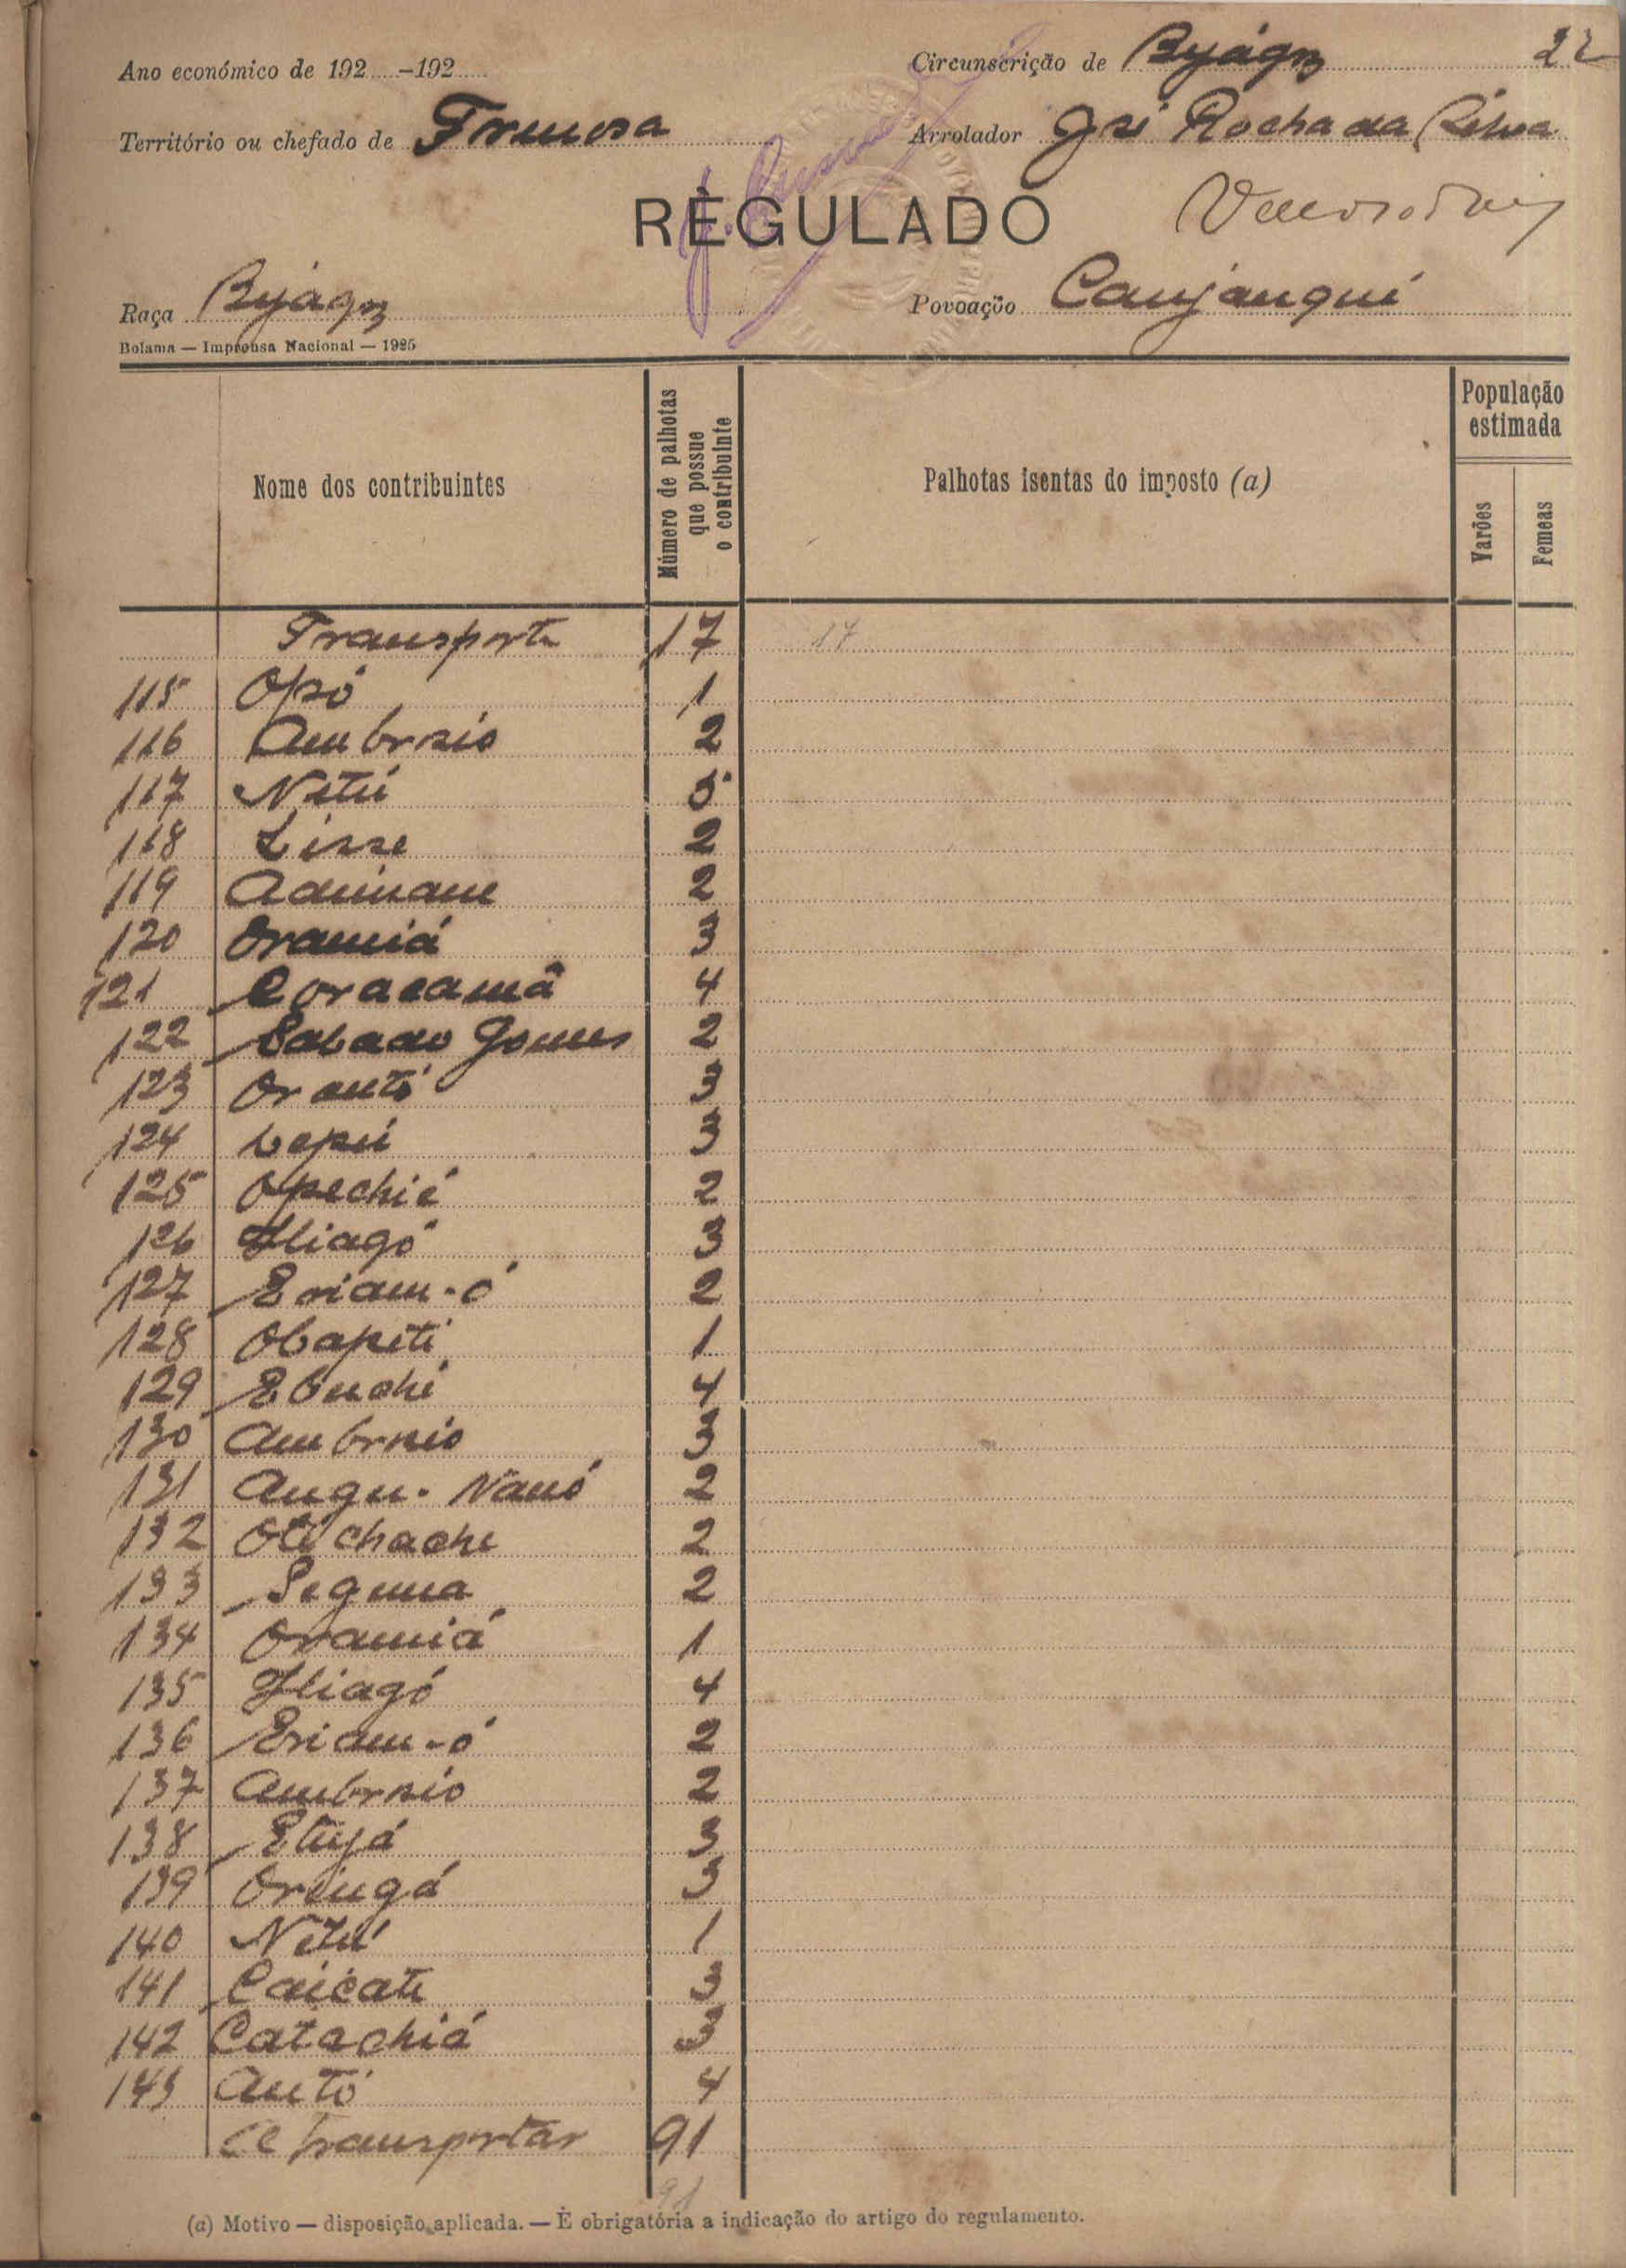 Ano económico de 192.....-192..... Circunscrição de Byágoz 22
Território ou chefado de Formosa Arrolador José Rocha da Silva
REGULADO
Raça Byágoz Povoação Canjanqui
Bolama — Imprensa Nacional — 1925
Nome dos contribuintes Número de palhotas que possue o contribuinte Palhotas isentas do imposto (a) População estimada Varões Femeas
Transporte 17 17
115 Opó 1
116 Ambrosio 2
117 Netú 5
118 Lisse 2
119 2
120 Oramiá 3
121 Coracamã 4
122 Sabado Gomes 2
123 Orantó 3
124 3
125 Opechié 2
126 3
127 Eriam-ó 2
128 Obapiti 1
129 Ebuchi 4
130 Ambrosio 3
131 Augu. Namó 2
132 Oti chache 2
133 Seguma 2
134 Oramiá 1
135 4
136 Eriam-ó 2
137 Ambrosio 2
138 Etuyá 3
139 Oringá 3
140 Netú 1
141 Caicati 3
142 Catachiá 3
143 Antó 4
A transportar 91
91
(a) Motivo — disposição aplicada. — É obrigatória a indicação do artigo do regulamento.